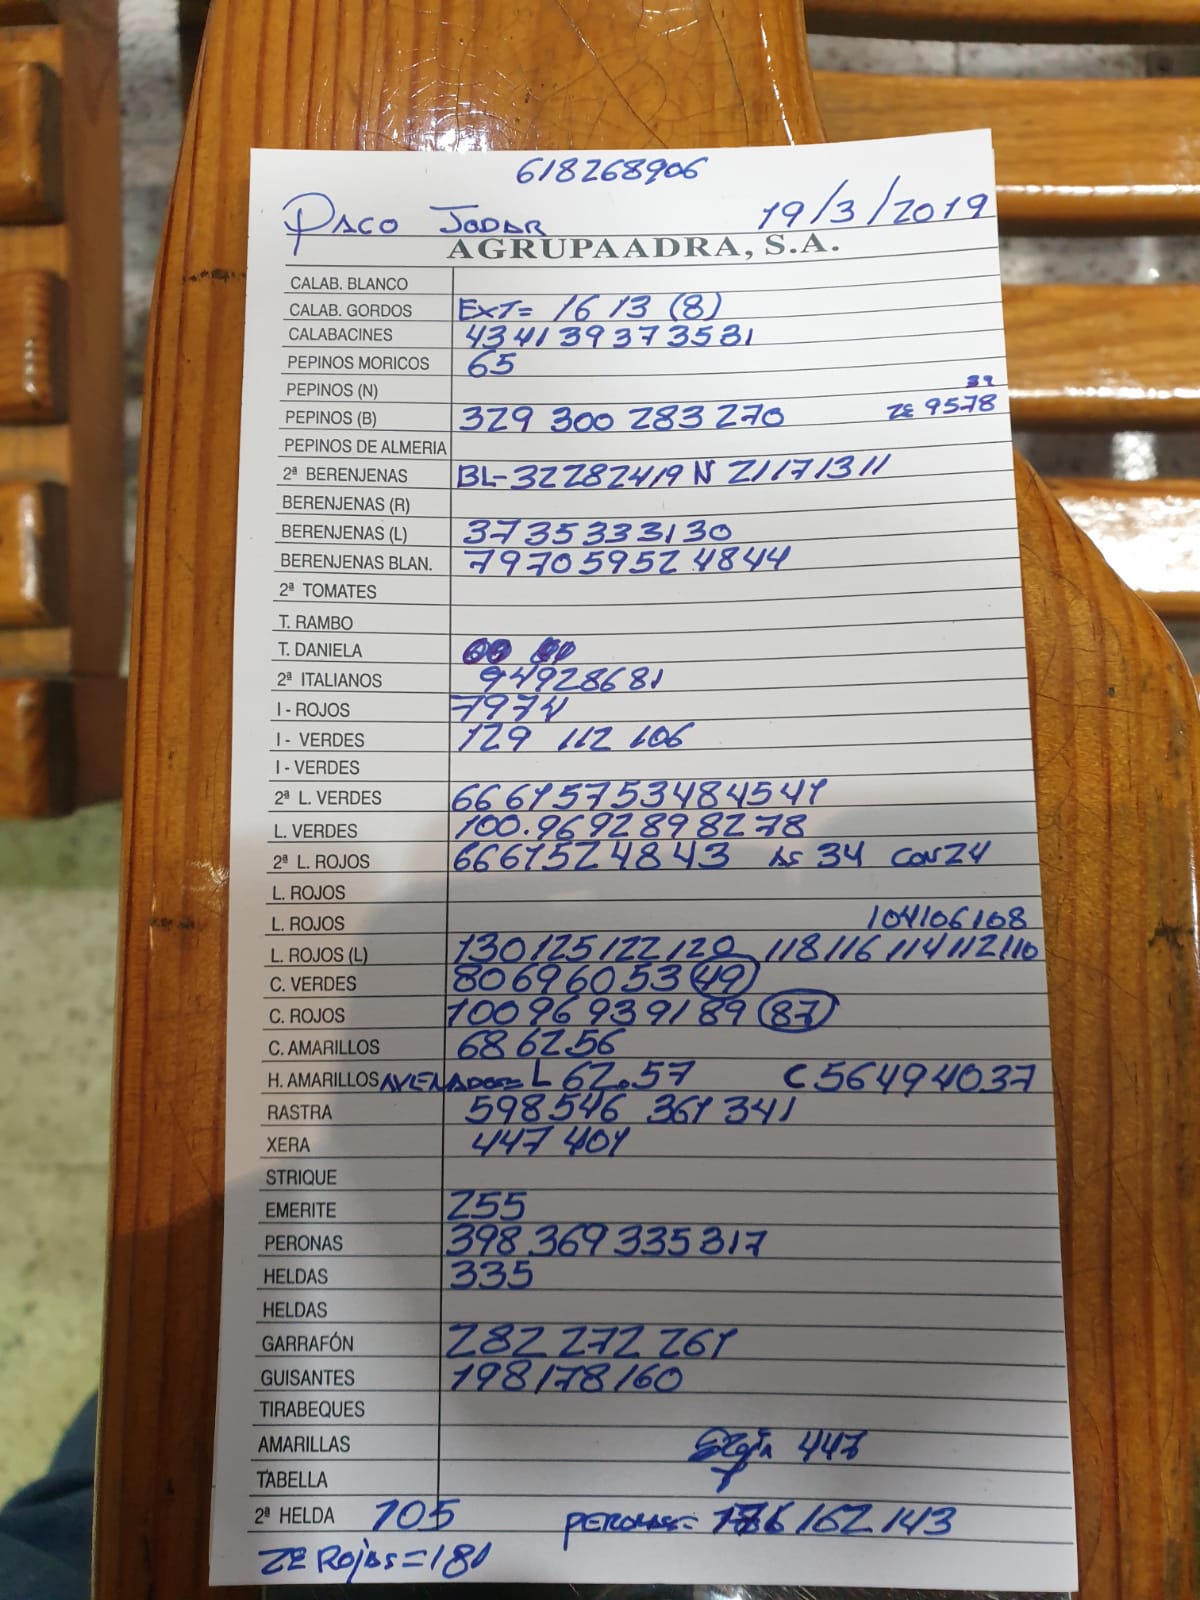 618268906
PACO JODAR 19/3/2019
AGRUPAADRA, S.A.
CALAB. BLANCO
CALAB. GORDOS EXT= 16 13 (8)
CALABACINES 43 41 39 37 35 31
PEPINOS MORICOS 65
PEPINOS (N) 39
PEPINOS (B) 329 300 283 270 2E 95 78
PEPINOS DE ALMERIA
2ª BERENJENAS BL- 32 28 24 19 N 21 17 13 11
BERENJENAS (R)
BERENJENAS (L) 37 35 33 31 30
BERENJENAS BLAN. 79 70 59 52 48 44
2ª TOMATES
T. RAMBO
T. DANIELA
2ª ITALIANOS 94 92 86 81
I - ROJOS 79 74
I - VERDES 129 112 106
I - VERDES
2ª L. VERDES 66 61 57 53 48 45 41
L. VERDES 100.96 92 89 82 78
2ª L. ROJOS 66 61 52 48 43 AS 34 CON 24
L. ROJOS
L. ROJOS 104 106 108
L. ROJOS (L) 130 125 122 120 118 116 114 112 110
C. VERDES 80 69 60 53 (49)
C. ROJOS 100 96 93 91 89 (87)
C. AMARILLOS 68 62 56
H. AMARILLOS L 62.57 C 56 49 40 37
RASTRA 598 546 361 341
XERA 447 401
STRIQUE
EMERITE 255
PERONAS 398 369 335 317
HELDAS 335
HELDAS
GARRAFÓN 282 272 261
GUISANTES 198 178 160
TIRABEQUES
AMARILLAS 447
TABELLA
2ª HELDA 105 PERONAS= 162 143
2E ROJAS = 181